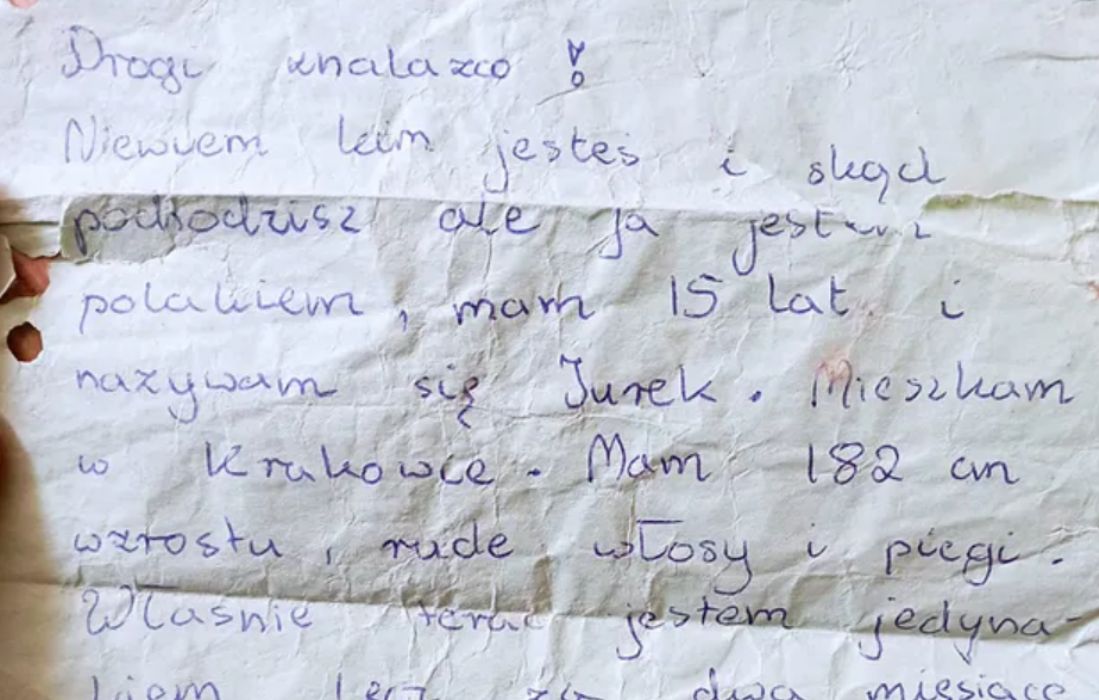 Drogi znalazco!
Niewiem kim jesteś i skąd
pochodzisz ale ja jestem
polakiem, mam 15 lat i
nazywam się Jurek. Mieszkam
w Krakowie. Mam 182 cm
wzrostu, rude włosy i piegi.
Właśnie teraz jestem jedyna-
kiem lecz za dwa miesiące